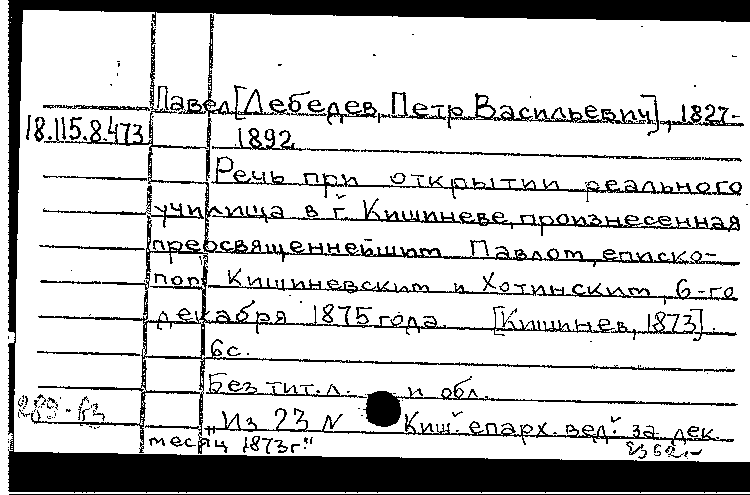 Павел [Лебедев, Петр Васильевич], 1827-
18.115.8.473 1892
Речь при открытии реального
училища в г. Кишиневе, произнесенная
преосвященнейшим Павлом, еписко-
пом Кишиневским и Хотинским, 6-го
декабря 1875 года. [Кишинев, 1873].
6с.
Без тит. л. и обл.
289-
"Из 23 N Киш. епарх. вед. за дек.
месяц 1873г."